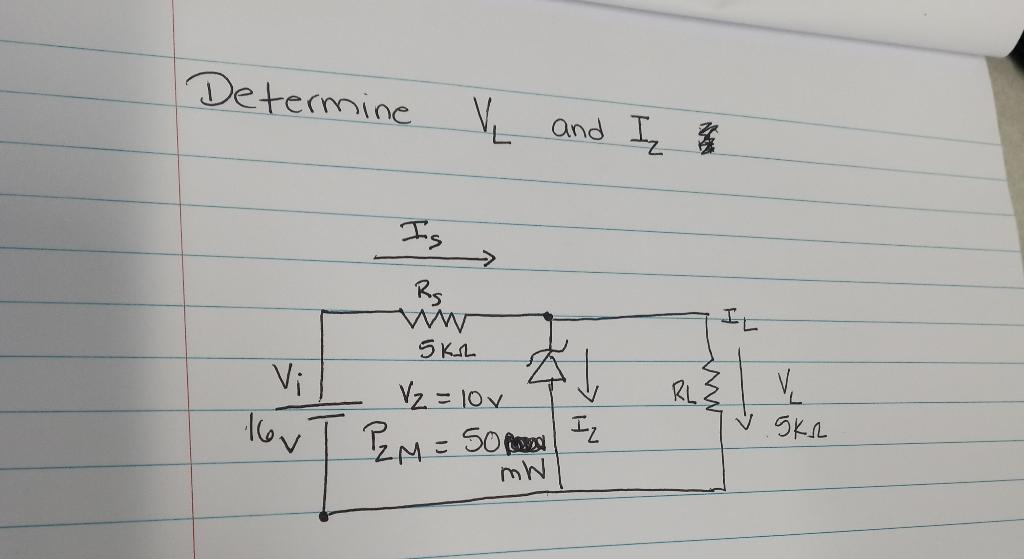 Determine V_L and I_Z
I_S
R_S
5KΩ
V_i
16V
V_Z = 10V
P_ZM = 50
mW
I_Z
I_L
R_L
V_L
5KΩ